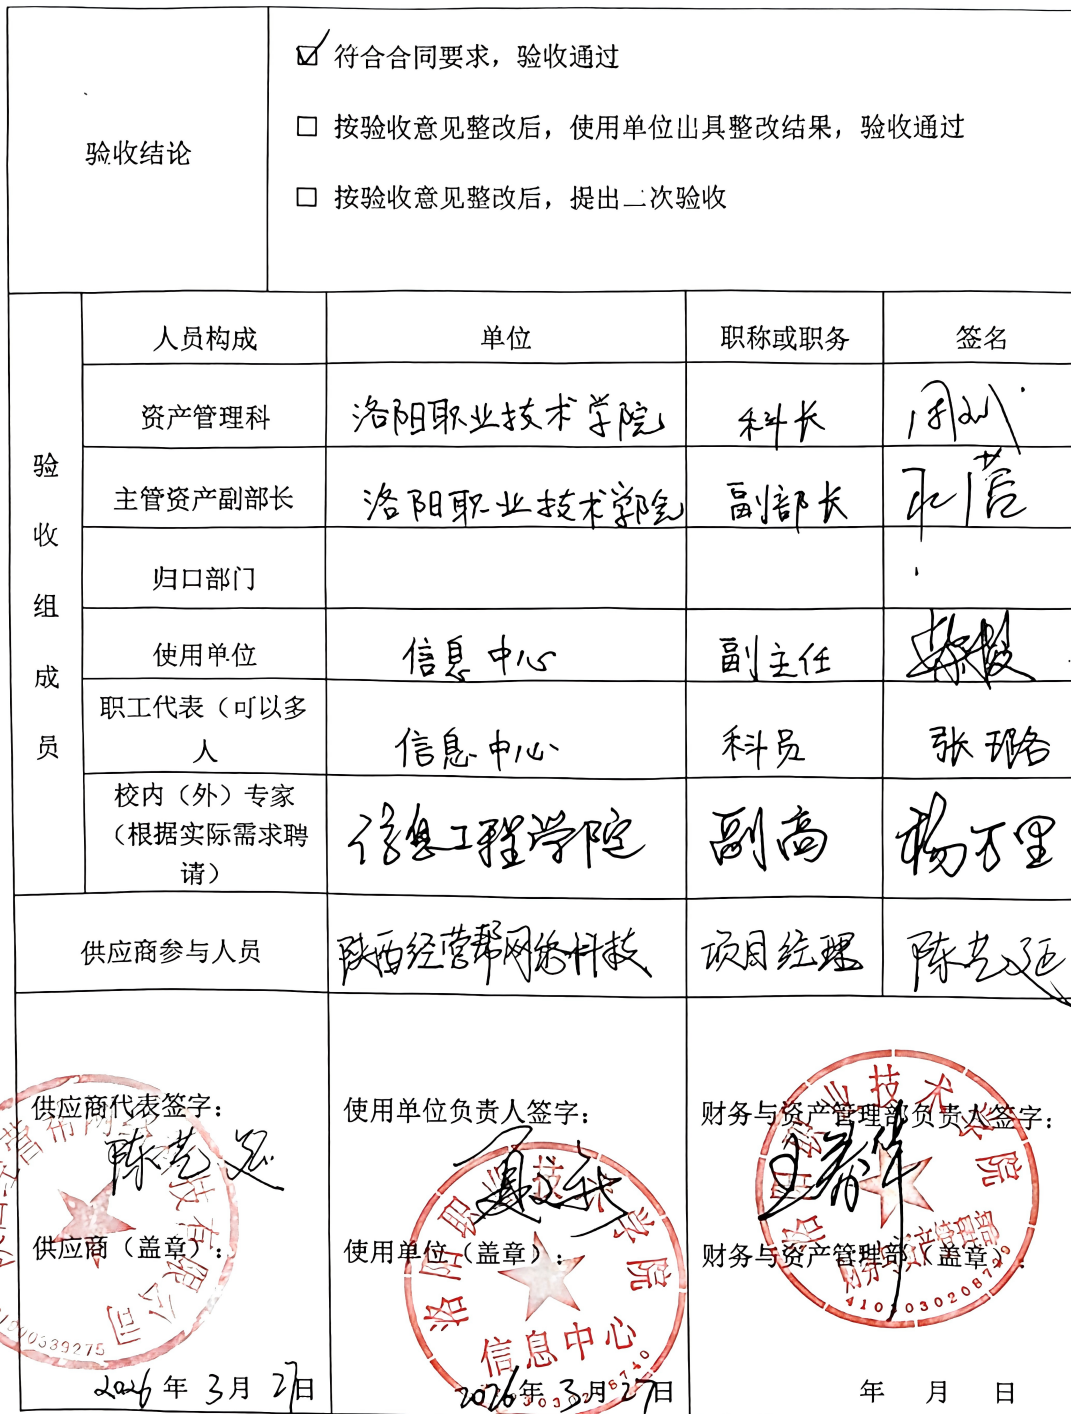 验收结论
☑ 符合合同要求，验收通过
□ 按验收意见整改后，使用单位出具整改结果，验收通过
□ 按验收意见整改后，提出二次验收
验收组成员
人员构成 单位 职称或职务 签名
资产管理科 洛阳职业技术学院 科长
主管资产副部长 洛阳职业技术学院 副部长
归口部门
使用单位 信息中心 副主任
职工代表（可以多
人 信息中心 科员 张璐
校内（外）专家
（根据实际需求聘
请） 信息工程学院 副高 杨万里
供应商参与人员 陕西经营帮网络科技 项目经理 陈艺延
供应商代表签字：
陈艺延
供应商（盖章）：
技有限公司
2026年3月27日
使用单位负责人签字：
使用单位（盖章）：
洛阳职业技术学院
信息中心
2026年3月27日
财务与资产管理部负责人签字：
财务与资产管理部（盖章）：
洛阳职业技术学院
财务与资产管理部
年 月 日